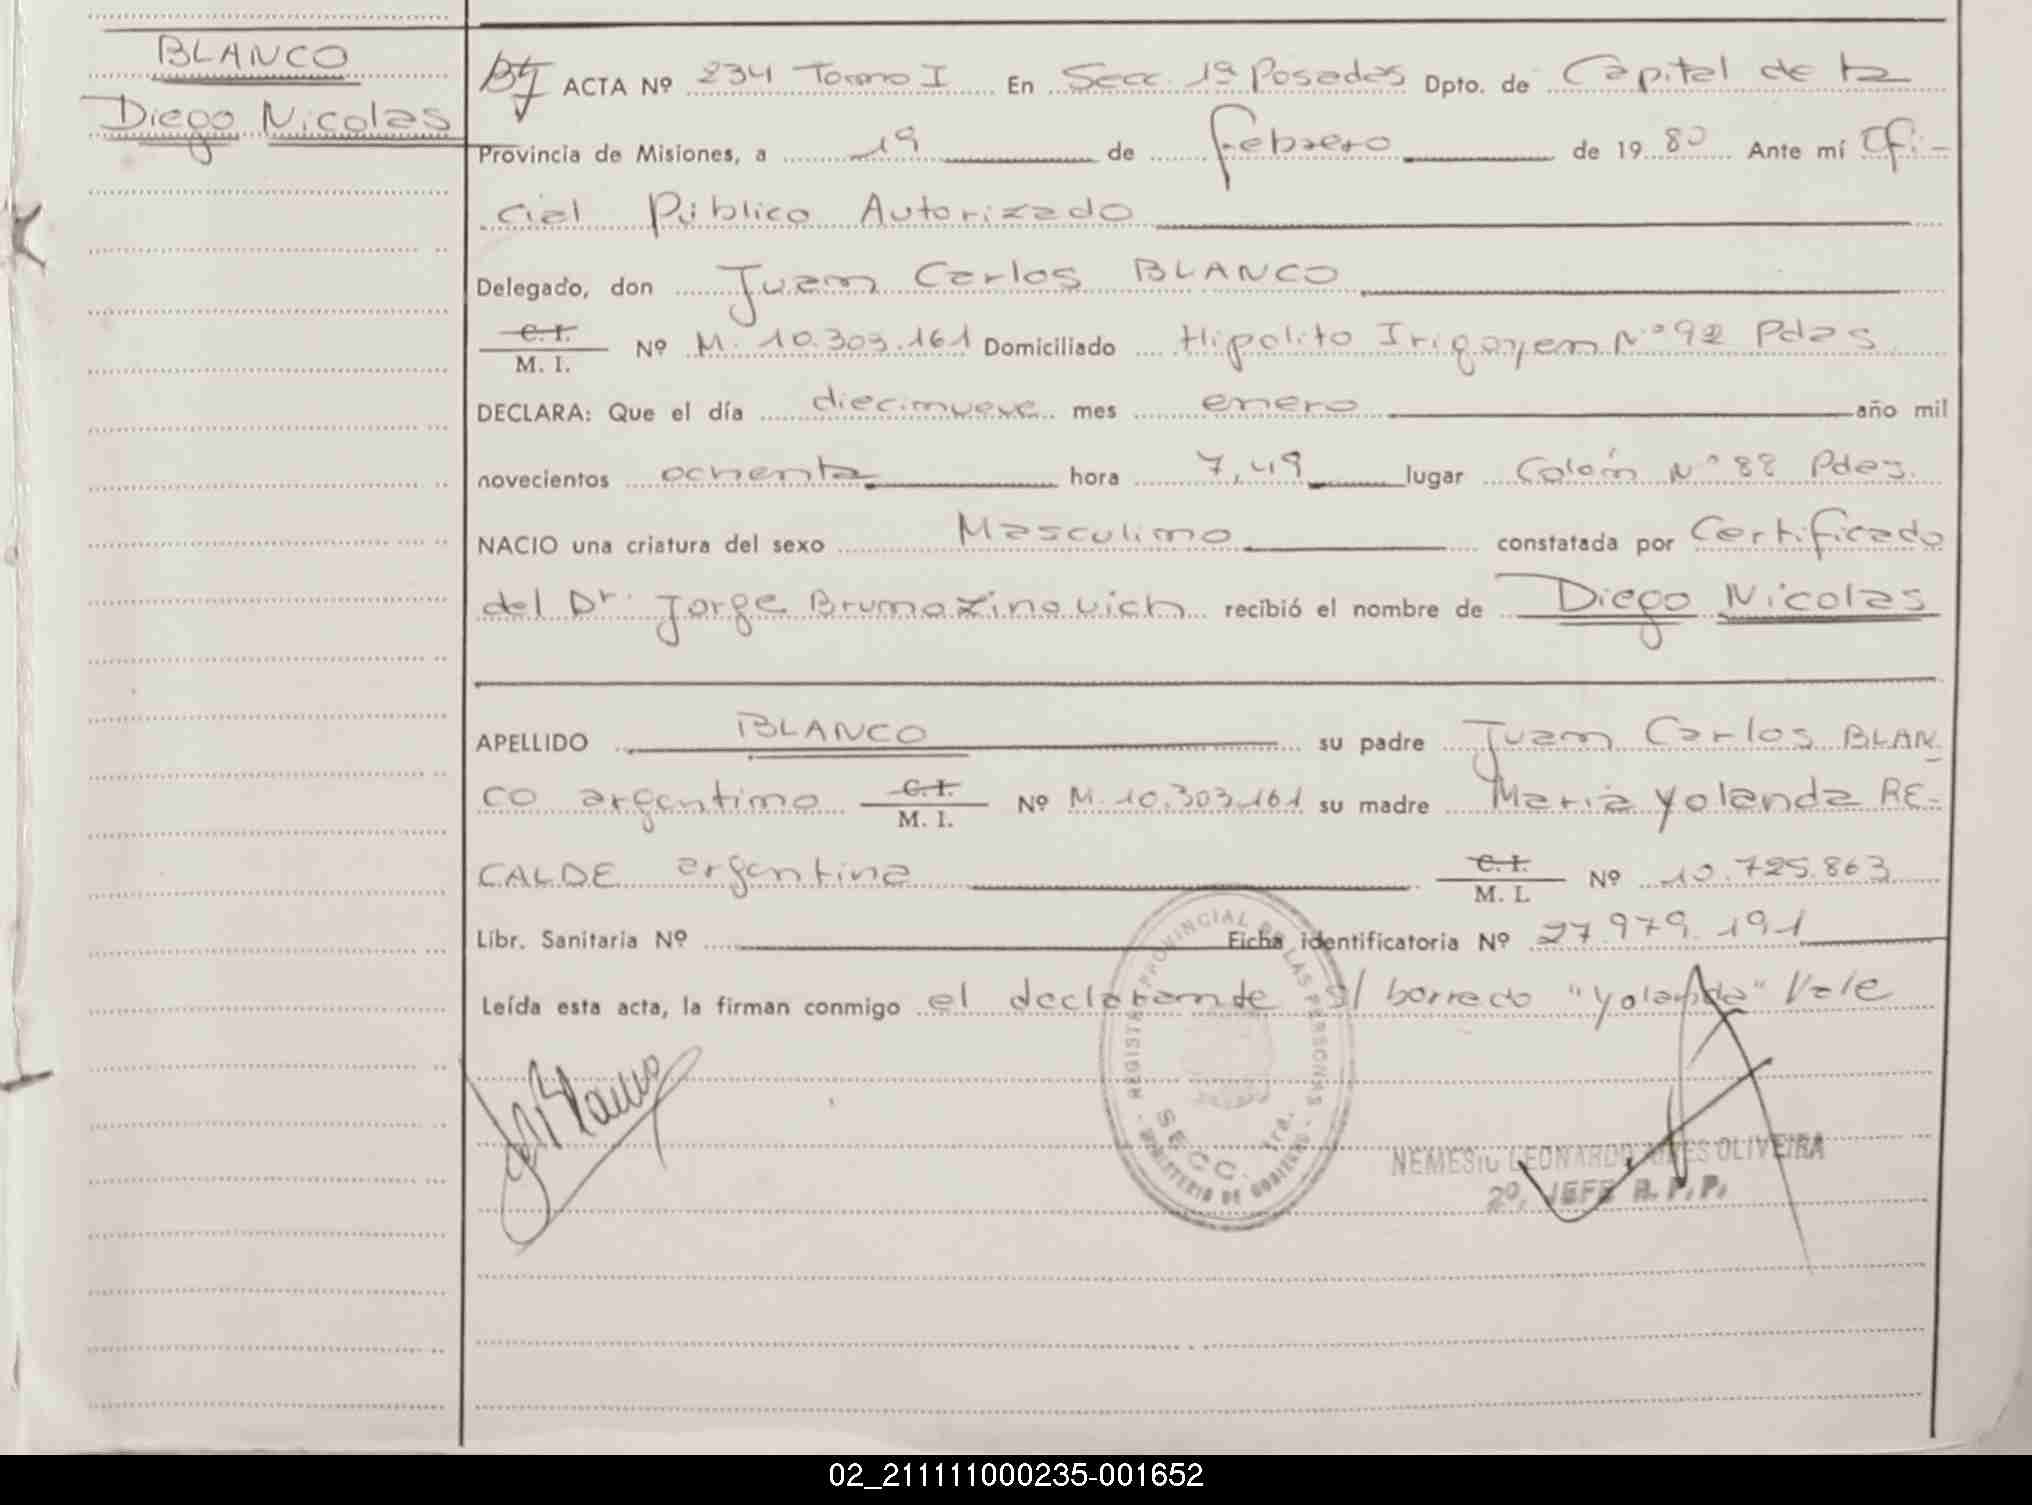 BLANCO
Diego Nicolas
ACTA Nº 234 Tomo I En Secc. 1ª Posadas Dpto. de Capital de la
Provincia de Misiones, a 19 de febrero de 1980 Ante mí Ofi-
cial Público Autorizado
Delegado, don Juan Carlos BLANCO
C. I.
M. I. Nº M. 10.303.161 Domiciliado Hipolito Irigoyen Nº 92 Pdas
DECLARA: Que el día diecinueve mes enero año mil
novecientos ochenta hora 7,49 lugar Colón Nº 88 Pdas.
NACIO una criatura del sexo Masculino constatada por Certificado
del Dr. Jorge Bruno Zinovich recibió el nombre de Diego Nicolas
APELLIDO BLANCO su padre Juan Carlos BLAN
CO argentino C. I. M. I. Nº M. 10.303.161 su madre Maria Yolanda RE-
CALDE argentina C. I. M. I. Nº 10.725.863
Libr. Sanitaria Nº Ficha identificatoria Nº 27.979.191
Leída esta acta, la firman conmigo el declarante S/ borrado "Yolanda" Vale
REGISTRO PROVINCIAL DE LAS PERSONAS
SECC. 1ra.
MINISTERIO DE GOBIERNO
NEMESIO LEONARDO OLIVEIRA
2º. JEFE R. P. P.
02_211111000235-001652